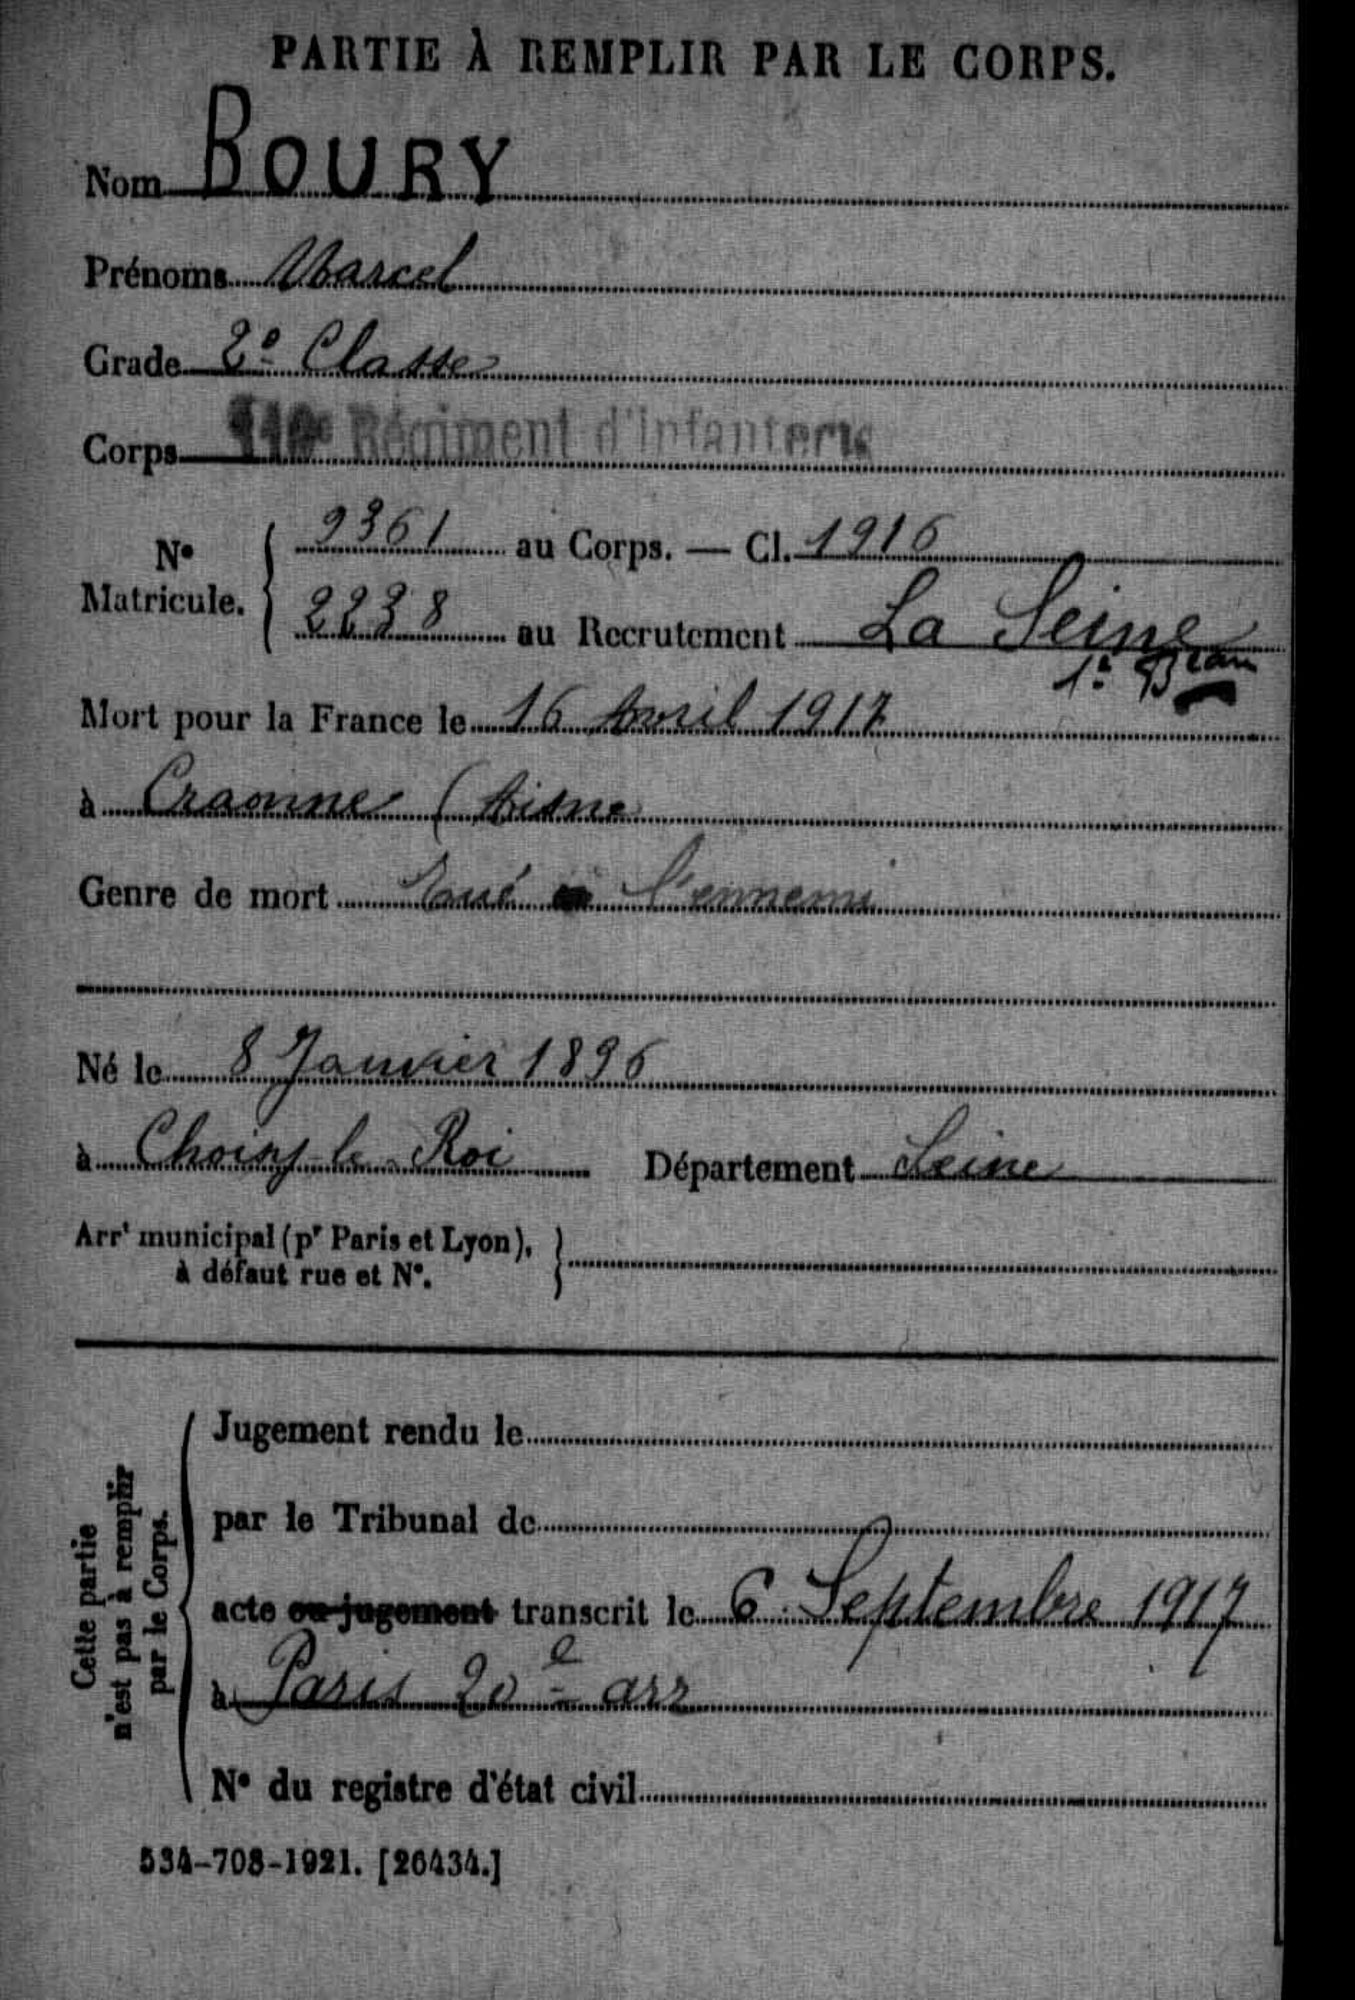 PARTIE À REMPLIR PAR LE CORPS.
Nom BOURY
Prénoms Marcel
Grade 2e Classe
Corps 110e Régiment d'Infanterie
No Matricule. { 9361 au Corps. — Cl. 1916
2238 au Recrutement La Seine
1er Beau
Mort pour la France le 16 Avril 1917
à Craonne (Aisne
Genre de mort Tué à l'ennemi
Né le 8 Janvier 1896
à Choisy-le-Roi Département Seine
Arrt municipal (pr Paris et Lyon),
à défaut rue et No. }
Cette partie
n'est pas à remplir
par le Corps.
Jugement rendu le
par le Tribunal de
acte ou jugement transcrit le 6 Septembre 1917
à Paris 20e arr
No du registre d'état civil
534-708-1921. [26434.]